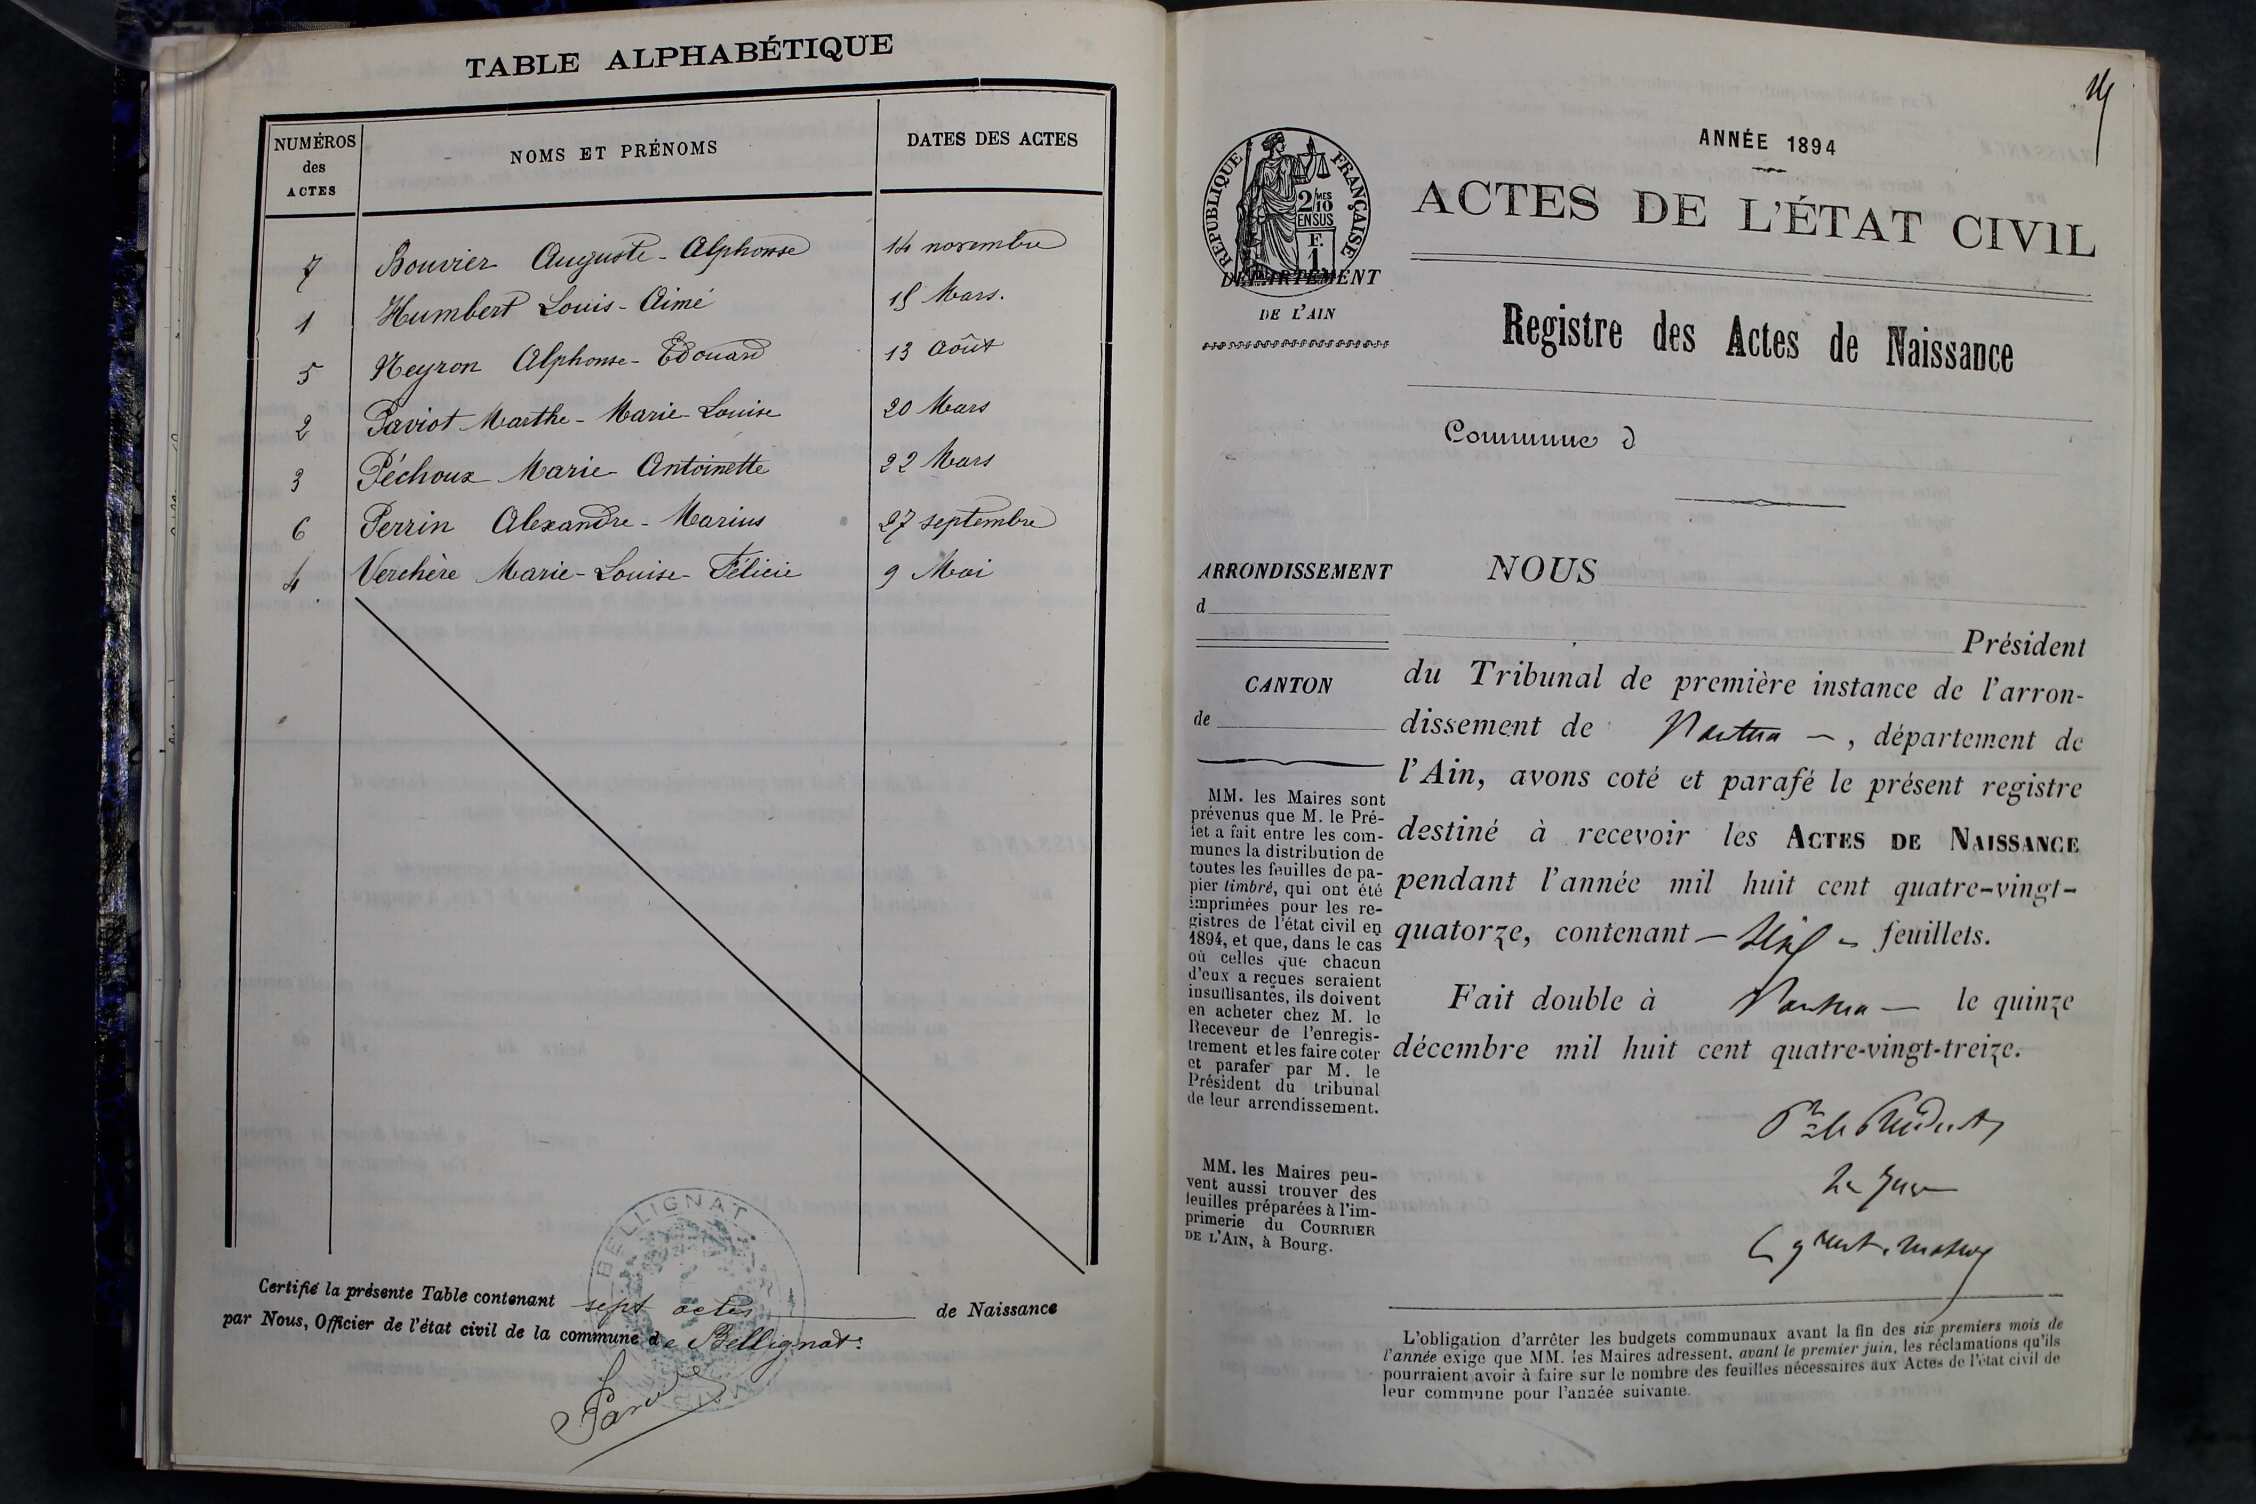 TABLE ALPHABÉTIQUE
NUMÉROS
des
ACTES
NOMS ET PRÉNOMS
DATES DES ACTES
7 Bouvier Auguste-Alphonse 14 novembre
1 Humbert Louis-Aimé 15 Mars.
5 Neyron Alphonse-Edouard 13 Août
2 Paviot Marthe-Marie-Louise 20 Mars
3 Péchoux Marie-Antoinette 22 Mars
6 Perrin Alexandre-Marius 27 septembre
4 Verchère Marie-Louise-Félicie 9 Mai
BELLIGNAT
Certifié la présente Table contenant sept actes de Naissance
par Nous, Officier de l'état civil de la commune de Bellignat.
ANNÉE 1894
RÉPUBLIQUE FRANÇAISE
2/MES
10
EN SUS
F.
1
DÉPARTEMENT
DE L'AIN
ACTES DE L'ÉTAT CIVIL
Registre des Actes de Naissance
Commune d
ARRONDISSEMENT
d
CANTON
de
MM. les Maires sont
prévenus que M. le Pré-
fet a fait entre les com-
munes la distribution de
toutes les feuilles de pa-
pier timbré, qui ont été
imprimées pour les re-
gistres de l'état civil en
1894, et que, dans le cas
où celles que chacun
d'eux a reçues seraient
insuffisantes, ils doivent
en acheter chez M. le
Receveur de l'enregis-
trement et les faire coter
et parafer par M. le
Président du tribunal
de leur arrondissement.
MM. les Maires peu-
vent aussi trouver des
feuilles préparées à l'im-
primerie du COURRIER
DE L'AIN, à Bourg.
NOUS
Président
du Tribunal de première instance de l'arron-
dissement de Nantua —, département de
l'Ain, avons coté et parafé le présent registre
destiné à recevoir les ACTES DE NAISSANCE
pendant l'année mil huit cent quatre-vingt-
quatorze, contenant — — feuillets.
Fait double à Nantua — le quinze
décembre mil huit cent quatre-vingt-treize.
Pr le Président
Le Juge
L'obligation d'arrêter les budgets communaux avant la fin des six premiers mois de
l'année exige que MM. les Maires adressent, avant le premier juin, les réclamations qu'ils
pourraient avoir à faire sur le nombre des feuilles nécessaires aux Actes de l'état civil de
leur commune pour l'année suivante.